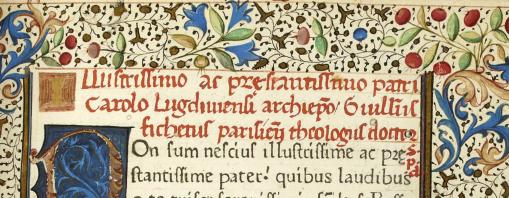 Illustrissimo ac prestantissimo patri
Carolo Lugdunensi archiepo Guillnis
fichetus parisien theologus doctor
s p d
Non sum nescius illustrissime ac pre
stantissime pater quibus laudibus